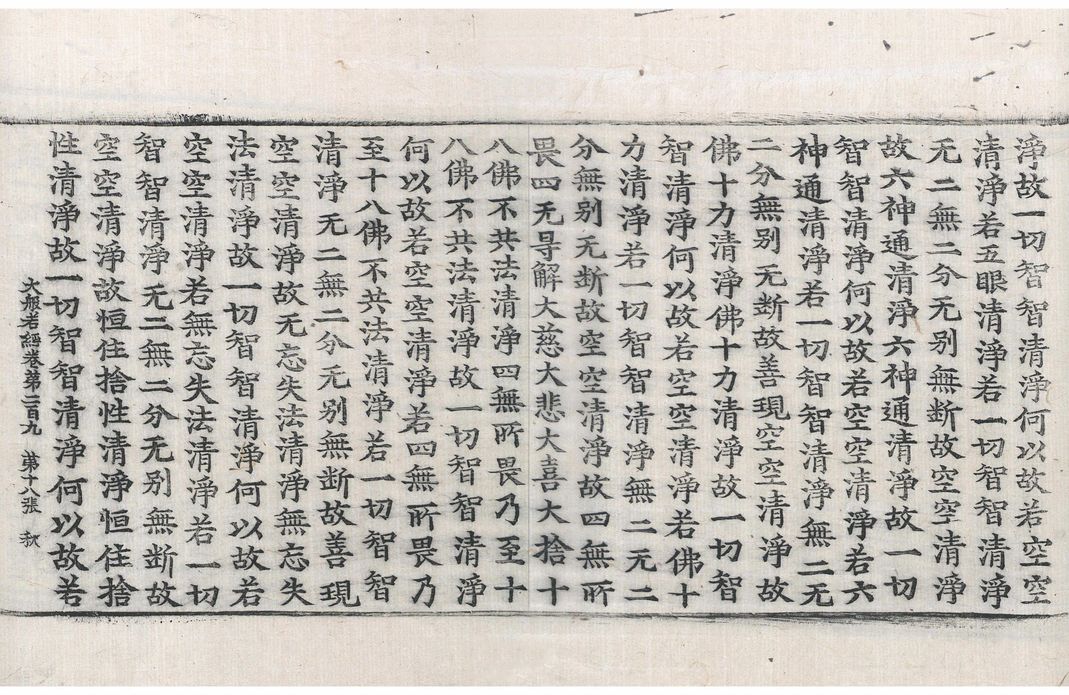 淨故一切智智清淨何以故若空空
清淨若五眼清淨若一切智智清淨
无二無二分无别無断故空空清淨
故六神通清淨六神通清淨故一切
智智清淨何以故若空空清淨若六
神通清淨若一切智智清淨無二无
二分無别无断故善現空空清淨故
佛十力清淨佛十力清淨故一切智
智清淨何以故若空空清淨若佛十
力清淨若一切智智清淨無二无二
分無别无断故空空清淨故四無所
畏四无导解大慈大悲大喜大捨十
八佛不共法清淨四無所畏乃至十
八佛不共法清淨故一切智智清淨
何以故若空空清淨若四無所畏乃
至十八佛不共法清淨若一切智智
清淨无二無二分无别無断故善現
空空清淨故无忘失法清淨無忘失
法清淨故一切智智清淨何以故若
空空清淨若無忘失法清淨若一切
智智清淨无二無二分无别無断故
空空清淨故恒住捨性清淨恒住捨
性清淨故一切智智清淨何以故若
大般若經卷第二百九 第十八張 秋